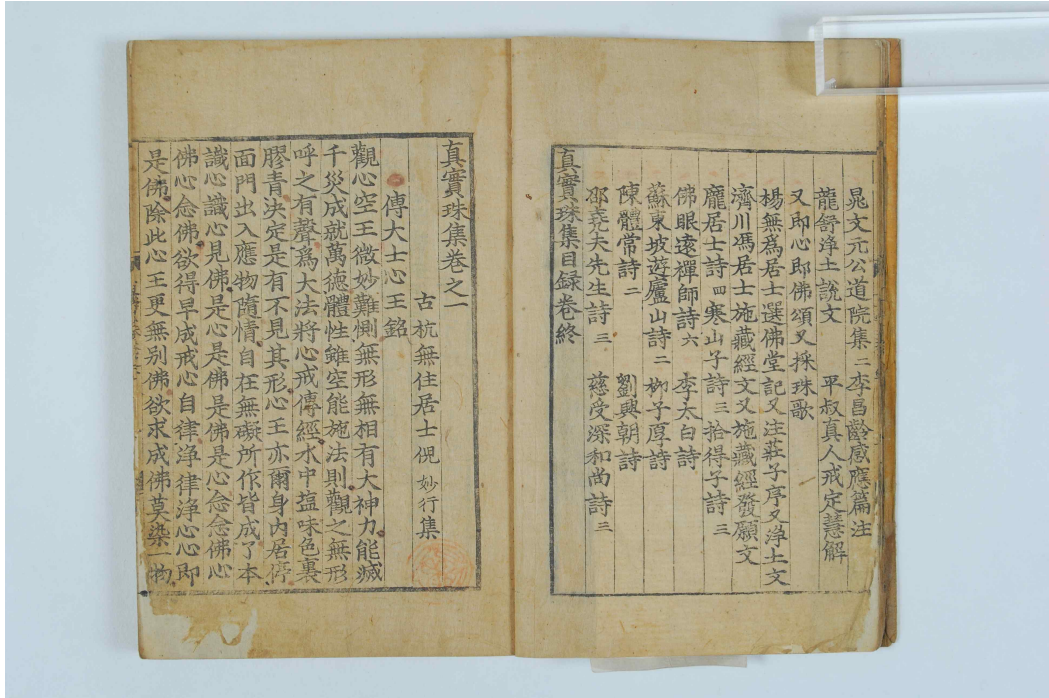 晁文元公道院集二 李昌齡感應篇注
龍舒淨土說文 平叔真人戒定慧解
又即心即佛頌又採珠歌
楊無爲居士選佛堂記又注莊子序又淨土文
濟川馮居士施藏經文又施藏經發願文
龐居士詩四 寒山子詩三 拾得子詩三
佛眼遠禪師詩六 李太白詩
蘇東坡遊廬山詩二 柳子厚詩
陳體常詩二 劉興朝詩
邵堯夫先生詩三 慈受深和尚詩三
真實珠集目録卷終
真實珠集卷之一
古杭無住居士倪 妙行集
傅大士心王銘
觀心空王微妙難惻無形無相有大神力能滅
千災成就萬德體性雖空能施法則觀之無形
呼之有聲爲大法將心戒傳經水中塩味色裏
膠青決定是有不見其形心王亦爾身內居停
面門出入應物隋情自在無礙所作皆成了本
識心識心見佛是心是佛是佛是心念念佛心
佛心念佛欲得早成戒心自律淨律淨心心即
是佛除此心王更無别佛欲求成佛莫染一物